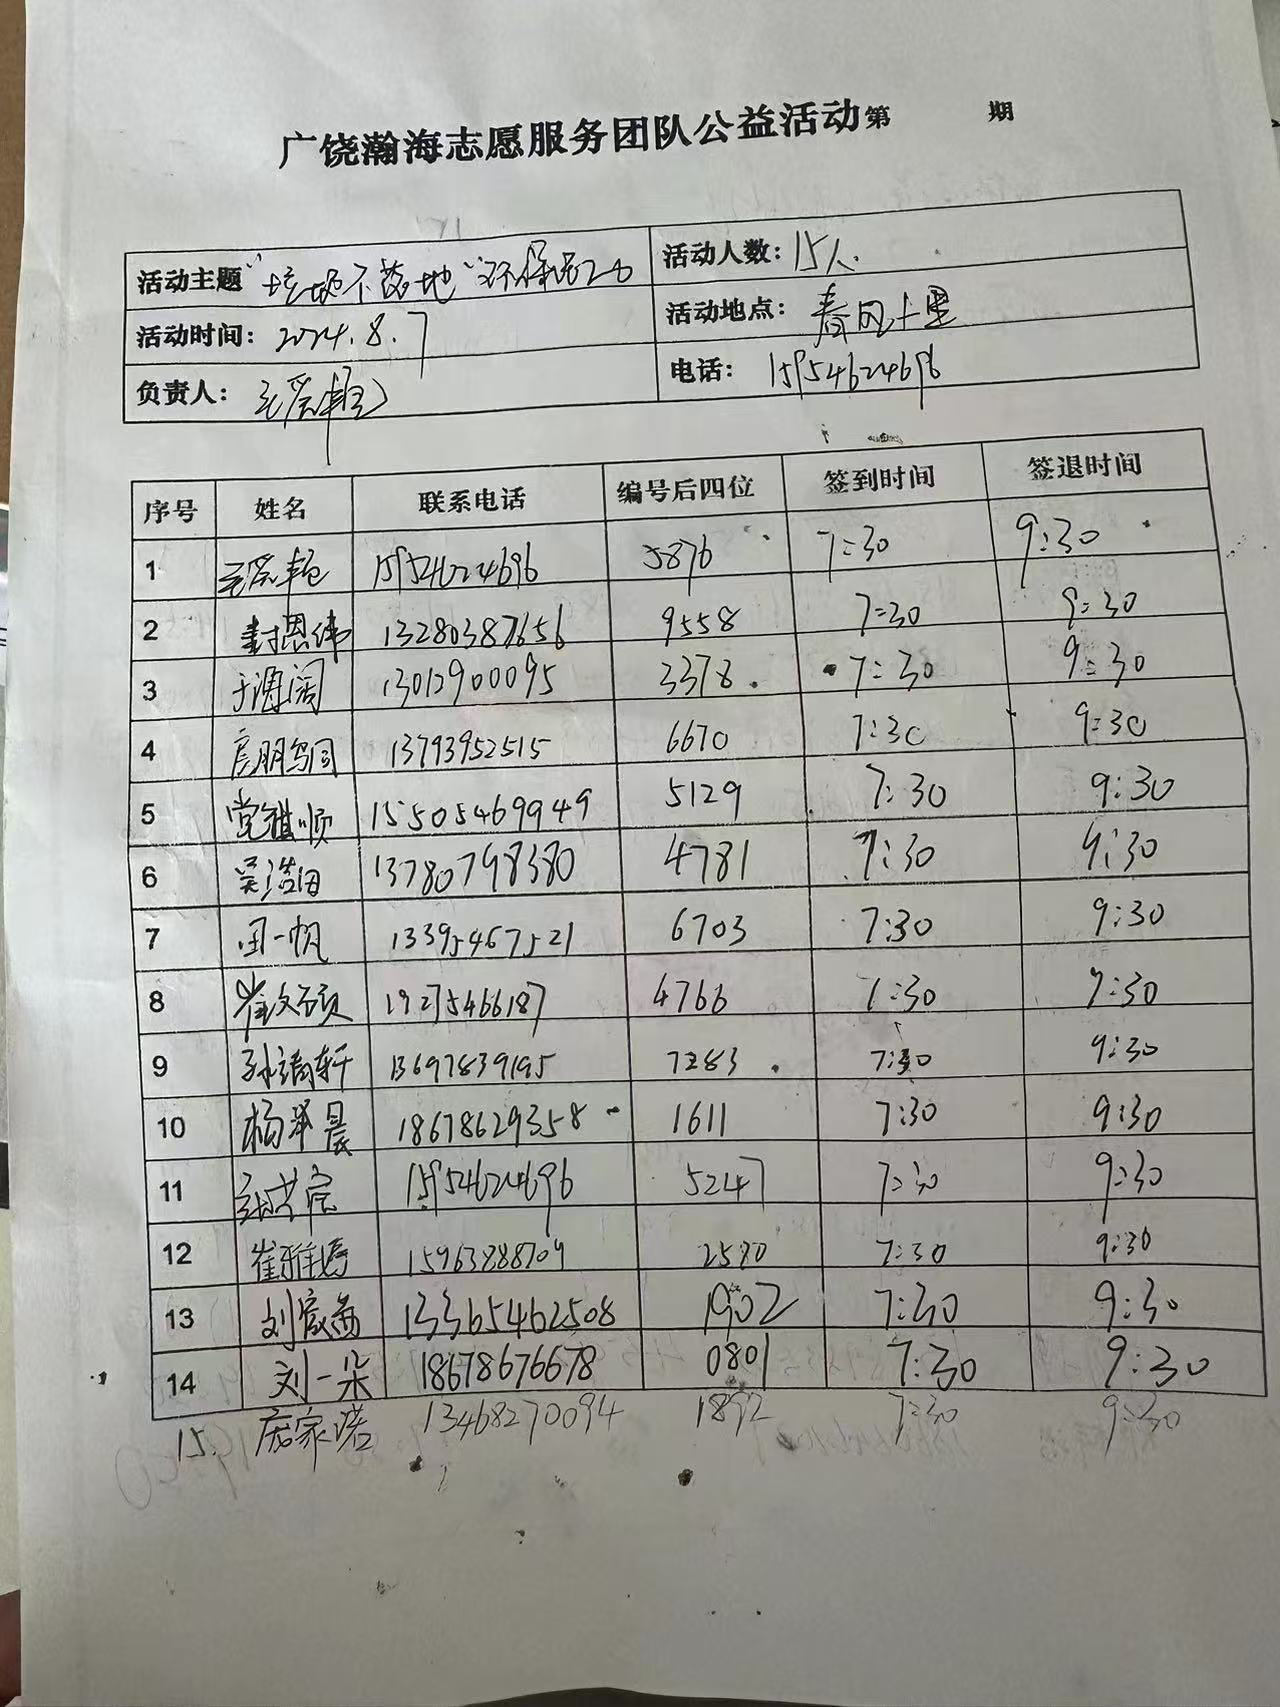 广饶瀚海志愿服务团队公益活动第 期
活动主题 "垃圾不落地" 环保 活动人数: 15人.
活动时间: 2024.8.7 活动地点: 春风十里
负责人: 电话: 15954624696
序号 姓名 联系电话 编号后四位 签到时间 签退时间
1 15954624696 5876 7:30 9:30
2 封恩纬 13280387656 9558 7:30 9:30
3 于溥阔 13012900095 3378 7:30 9:30
4 13793952515 6670 7:30 9:30
5 党祺顺 15505469949 5129 7:30 9:30
6 吴浩田 13780798380 4781 7:30 9:30
7 田一帆 13395467521 6703 7:30 9:30
8 崔文硕 19275466187 4766 7:30 9:30
9 孙靖轩 13697839195 7283 7:30 9:30
10 杨泽晨 18678629358 1611 7:30 9:30
11 15954624696 5247 7:30 9:30
12 崔雅婷 15963888709 2580 7:30 9:30
13 刘宸茜 13365462508 1902 7:30 9:30
14 刘一朵 18678676678 0801 7:30 9:30
15. 庞家诺 13468270094 1892 7:30 9:30